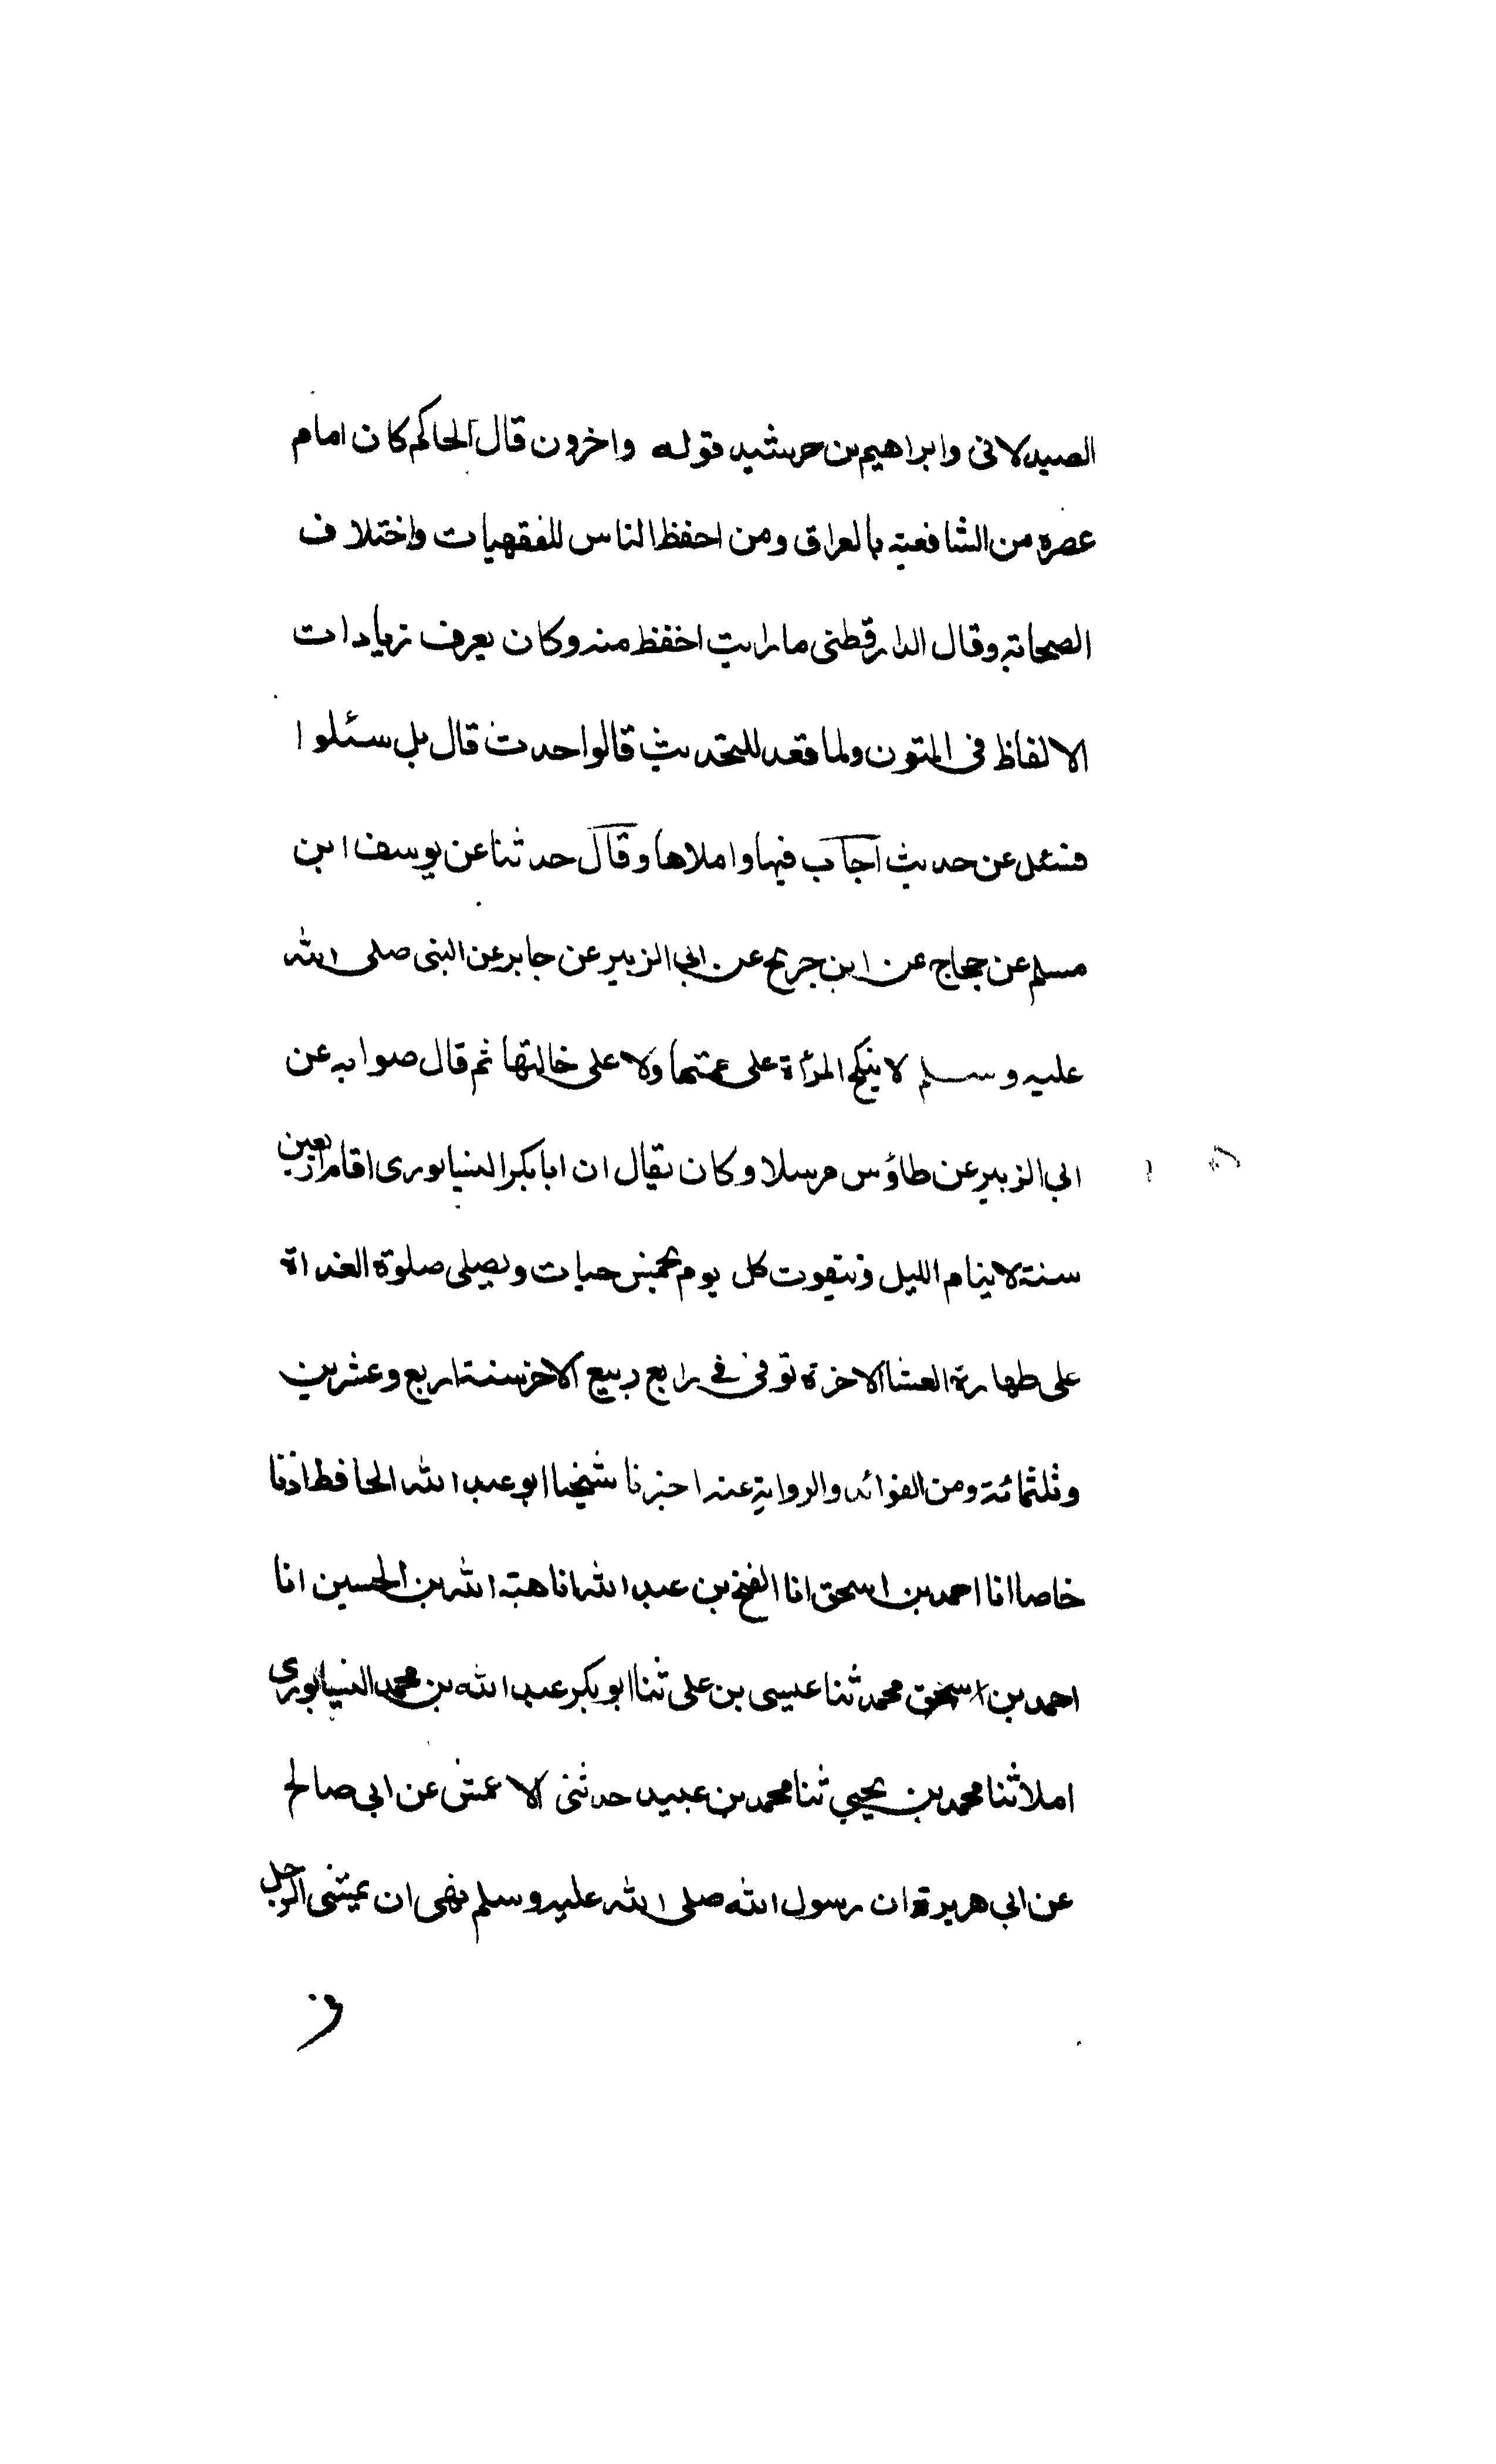 الصيدلانى وابراهيم بن خرشيد قوله واخرون قال الحاكم كان امام
عصره من الشافعية بالعراق ومن احفظ الناس للفقهيات واختلاف
الصحابة وقال الدارقطنى ما رايت احفظ منه وكان يعرف زيادات
الالفاظ فى المتون ولما قعد للتحديث قالوا حدث قال بل سئلوا
فسئل عن حديث اجاب فيها واملاها وقال حدثنا عن يوسف ابن
مسلم عن حجاج عن ابن جريج عن ابي الزبير عن جابر عن النبى صلى الله
عليه وسلم لا ينكح المرأة على عمتها ولا على خالتها ثم قال صوابه عن
ابي الزبير عن طاؤس مرسلا وكان يقال ان ابا بكر النيسابورى اقام اربعين
سنة لا ينام الليل ويتقوت كل يوم بخمس حبات ويصلى صلوة الغداة
على طهارة العشا الاخرة توفى فى رابع ربيع الاخر سنة اربع وعشرين
وثلثمائة ومن الفوائد والرواية عنه اخبرنا شيخنا ابو عبد الله الحافظ اذنا
خاصا انا احمد بن اسحق انا الفتح بن عبد الله انا هبة الله بن الحسين انا
احمد بن محمد ثنا عيسى بن على ثنا ابو بكر عبد الله بن محمد النيسابورى
املا ثنا محمد بن يحيي ثنا محمد بن عبيد حدثنى الاعمش عن ابى صالح
عن ابي هريرة ان رسول الله صلى الله عليه وسلم نهى ان يمشى الرجل
فى